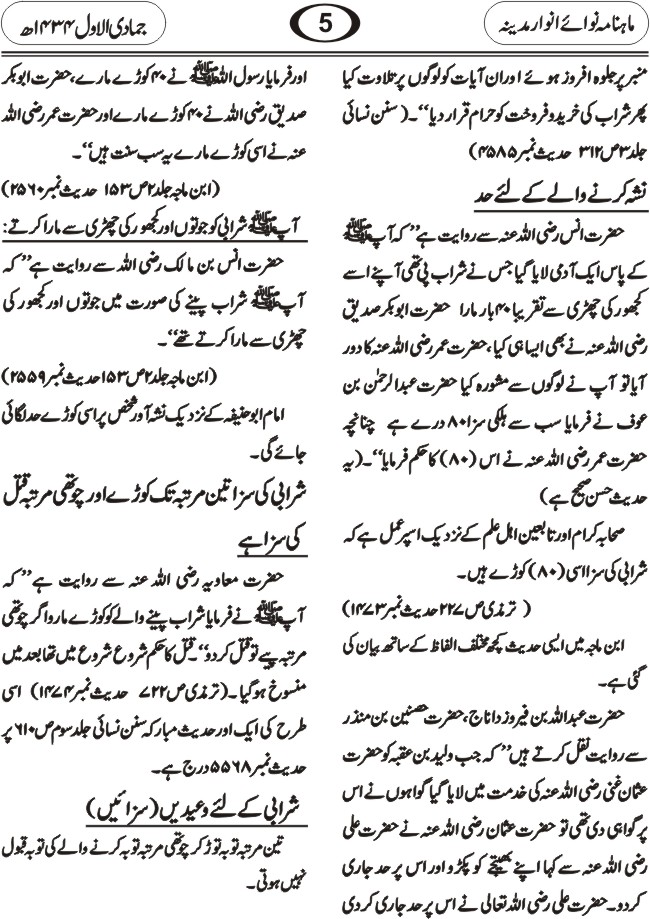 ماہنامہ نوائے انوار مدینہ
5
جمادی الاول ۱۴۳۴ھ
منبر پر جلوہ افروز ہوئے اور ان آیات کو لوگوں پر تلاوت کیا
پھر شراب کی خرید و فروخت کو حرام قرار دیا‘‘۔( سنن نسائی
جلد ۳ ص ۳۱۲ حدیث نمبر ۴۵۸۵)
نشہ کرنے والے کے لئے حد
حضرت انس رضی اللہ عنہ سے روایت ہے ’’ کہ آپ ﷺ
کے پاس ایک آدمی لایا گیا جس نے شراب پی تھی آپنے اسے
کجھور کی چھڑی سے تقریبا ۴۰ بار مارا حضرت ابوبکر صدیق
رضی اللہ عنہ نے بھی ایسا ہی کیا، حضرت عمر رضی اللہ عنہ کا دور
آیا تو آپ نے لوگوں سے مشورہ کیا حضرت عبدالرحمٰن بن
عوف نے فرمایا سب سے ہلکی سزا ۸۰ درے ہے چنانچہ
حضرت عمر رضی اللہ عنہ نے اس (۸۰) کا حکم فرمایا‘‘۔(یہ
حدیث حسن صحیح ہے)
صحابہ کرام اور تابعین اہل علم کے نزدیک اسپر عمل ہے کہ
شرابی کی سزا اسی (۸۰) کوڑے ہیں۔
( ترمذی ص ۲۲۷ حدیث نمبر ۱۴۷۳)
ابن ماجہ میں ایسی حدیث کچھ مختلف الفاظ کے ساتھ بیان کی
گئی ہے۔
حضرت عبداللہ بن فیروز داناج، حضرت حصنین بن منذر
سے روایت نقل کرتے ہیں ’’ کہ جب ولید بن عقبہ کو حضرت
عثمان غنی رضی اللہ عنہ کی خدمت میں لایا گیا گواہوں نے اس
پر گواہی دی تھی تو حضرت عثمان رضی اللہ عنہ نے حضرت علی
رضی اللہ عنہ سے کہا اپنے بھتیجے کو پکڑو اور اس پر حد جاری
کردو۔ حضرت علی رضی اللہ تعالی نے اس پر حد جاری کردی
اور فرمایا رسول اللہ ﷺ نے ۴۰ کوڑے مارے، حضرت ابوبکر
صدیق رضی اللہ نے ۴۰ کوڑے مارے اور حضرت عمر رضی اللہ
عنہ نے اسی کوڑے مارے یہ سب سنت ہیں‘‘۔
(ابن ماجہ جلد ۲ ص ۱۵۳ حدیث نمبر ۲۵۶۰)
آپ ﷺ شرابی کو جوتوں اور کجھور کی چھڑی سے مارا کرتے:
حضرت انس بن مالک رضی اللہ سے روایت ہے ’’ کہ
آپ ﷺ شراب پینے کی صورت میں جوتوں اور کجھور کی
چھڑی سے مارا کرتے تھے‘‘۔
(ابن ماجہ جلد ۲ ص ۱۵۳ حدیث نمبر ۲۵۵۹)
امام ابوحنیفہ کے نزدیک نشہ آور شخص پر اسی کوڑے حد لگائی
جائے گی۔
شرابی کی سزا تین مرتبہ تک کوڑے اور چوتھی مرتبہ قتل
کی سزا ہے
حضرت معاویہ رضی اللہ عنہ سے روایت ہے ’’ کہ
آپ ﷺ نے فرمایا شراب پینے والے کو کوڑے مارو اگر چوتھی
مرتبہ پیے تو قتل کردو‘‘۔ قتل کا حکم شروع شروع میں تھا بعد میں
منسوخ ہوگیا۔(ترمذی ص ۷۲۲ حدیث نمبر ۱۴۷۴) اسی
طرح کی ایک اور حدیث مبارکہ سنن نسائی جلد سوم ص ۶۱۰ پر
حدیث نمبر ۵۵۶۸ درج ہے۔
شرابی کے لئے وعیدیں (سزائیں)
تین مرتبہ توبہ توڑ کر چوتھی مرتبہ توبہ کرنے والے کی توبہ قبول
نہیں ہوتی۔